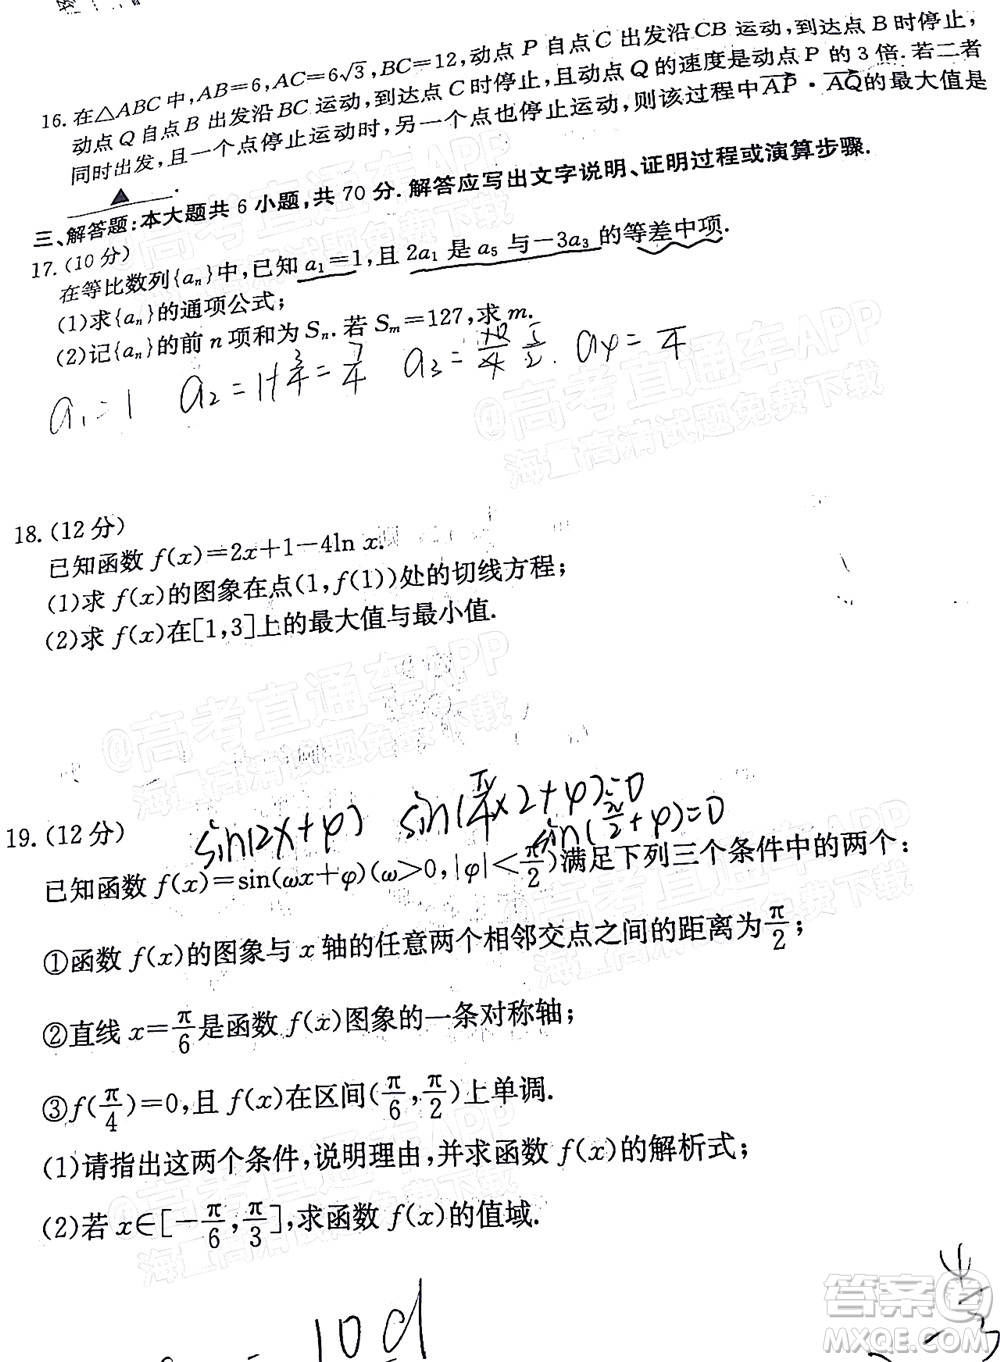 16. 在△ABC中,AB=6,AC=6√3,BC=12,动点P自点C出发沿CB运动,到达点B时停止,
动点Q自点B出发沿BC运动,到达点C时停止,且动点Q的速度是动点P的3倍.若二者
同时出发,且一个点停止运动时,另一个点也停止运动,则该过程中AP·AQ的最大值是
▲ .
三、解答题:本大题共6小题,共70分.解答应写出文字说明、证明过程或演算步骤.
17.(10分)
在等比数列{aₙ}中,已知a₁=1,且2a₁是a₅与−3a₃的等差中项.
(1)求{aₙ}的通项公式;
(2)记{aₙ}的前n项和为Sₙ.若Sₘ=127,求m.
a₁=1 a₂=1+3/4=7/4 a₃=10/4 5/2. a₄=
18.(12分)
已知函数f(x)=2x+1−4ln x.
(1)求f(x)的图象在点(1,f(1))处的切线方程;
(2)求f(x)在[1,3]上的最大值与最小值.
sin(2x+φ) sin(π/4×2+φ)=0
sin(π/2+φ)=0
19.(12分)
已知函数f(x)=sin(ωx+φ)(ω>0,|φ|<π/2)满足下列三个条件中的两个:
①函数f(x)的图象与x轴的任意两个相邻交点之间的距离为π/2;
②直线x=π/6是函数f(x)图象的一条对称轴;
③f(π/4)=0,且f(x)在区间(π/6,π/2)上单调.
(1)请指出这两个条件,说明理由,并求函数f(x)的解析式;
(2)若x∈[−π/6,π/3],求函数f(x)的值域.
= 10d
@高考直通车APP
海量高清试题免费下载
答案圈
MXQE.COM